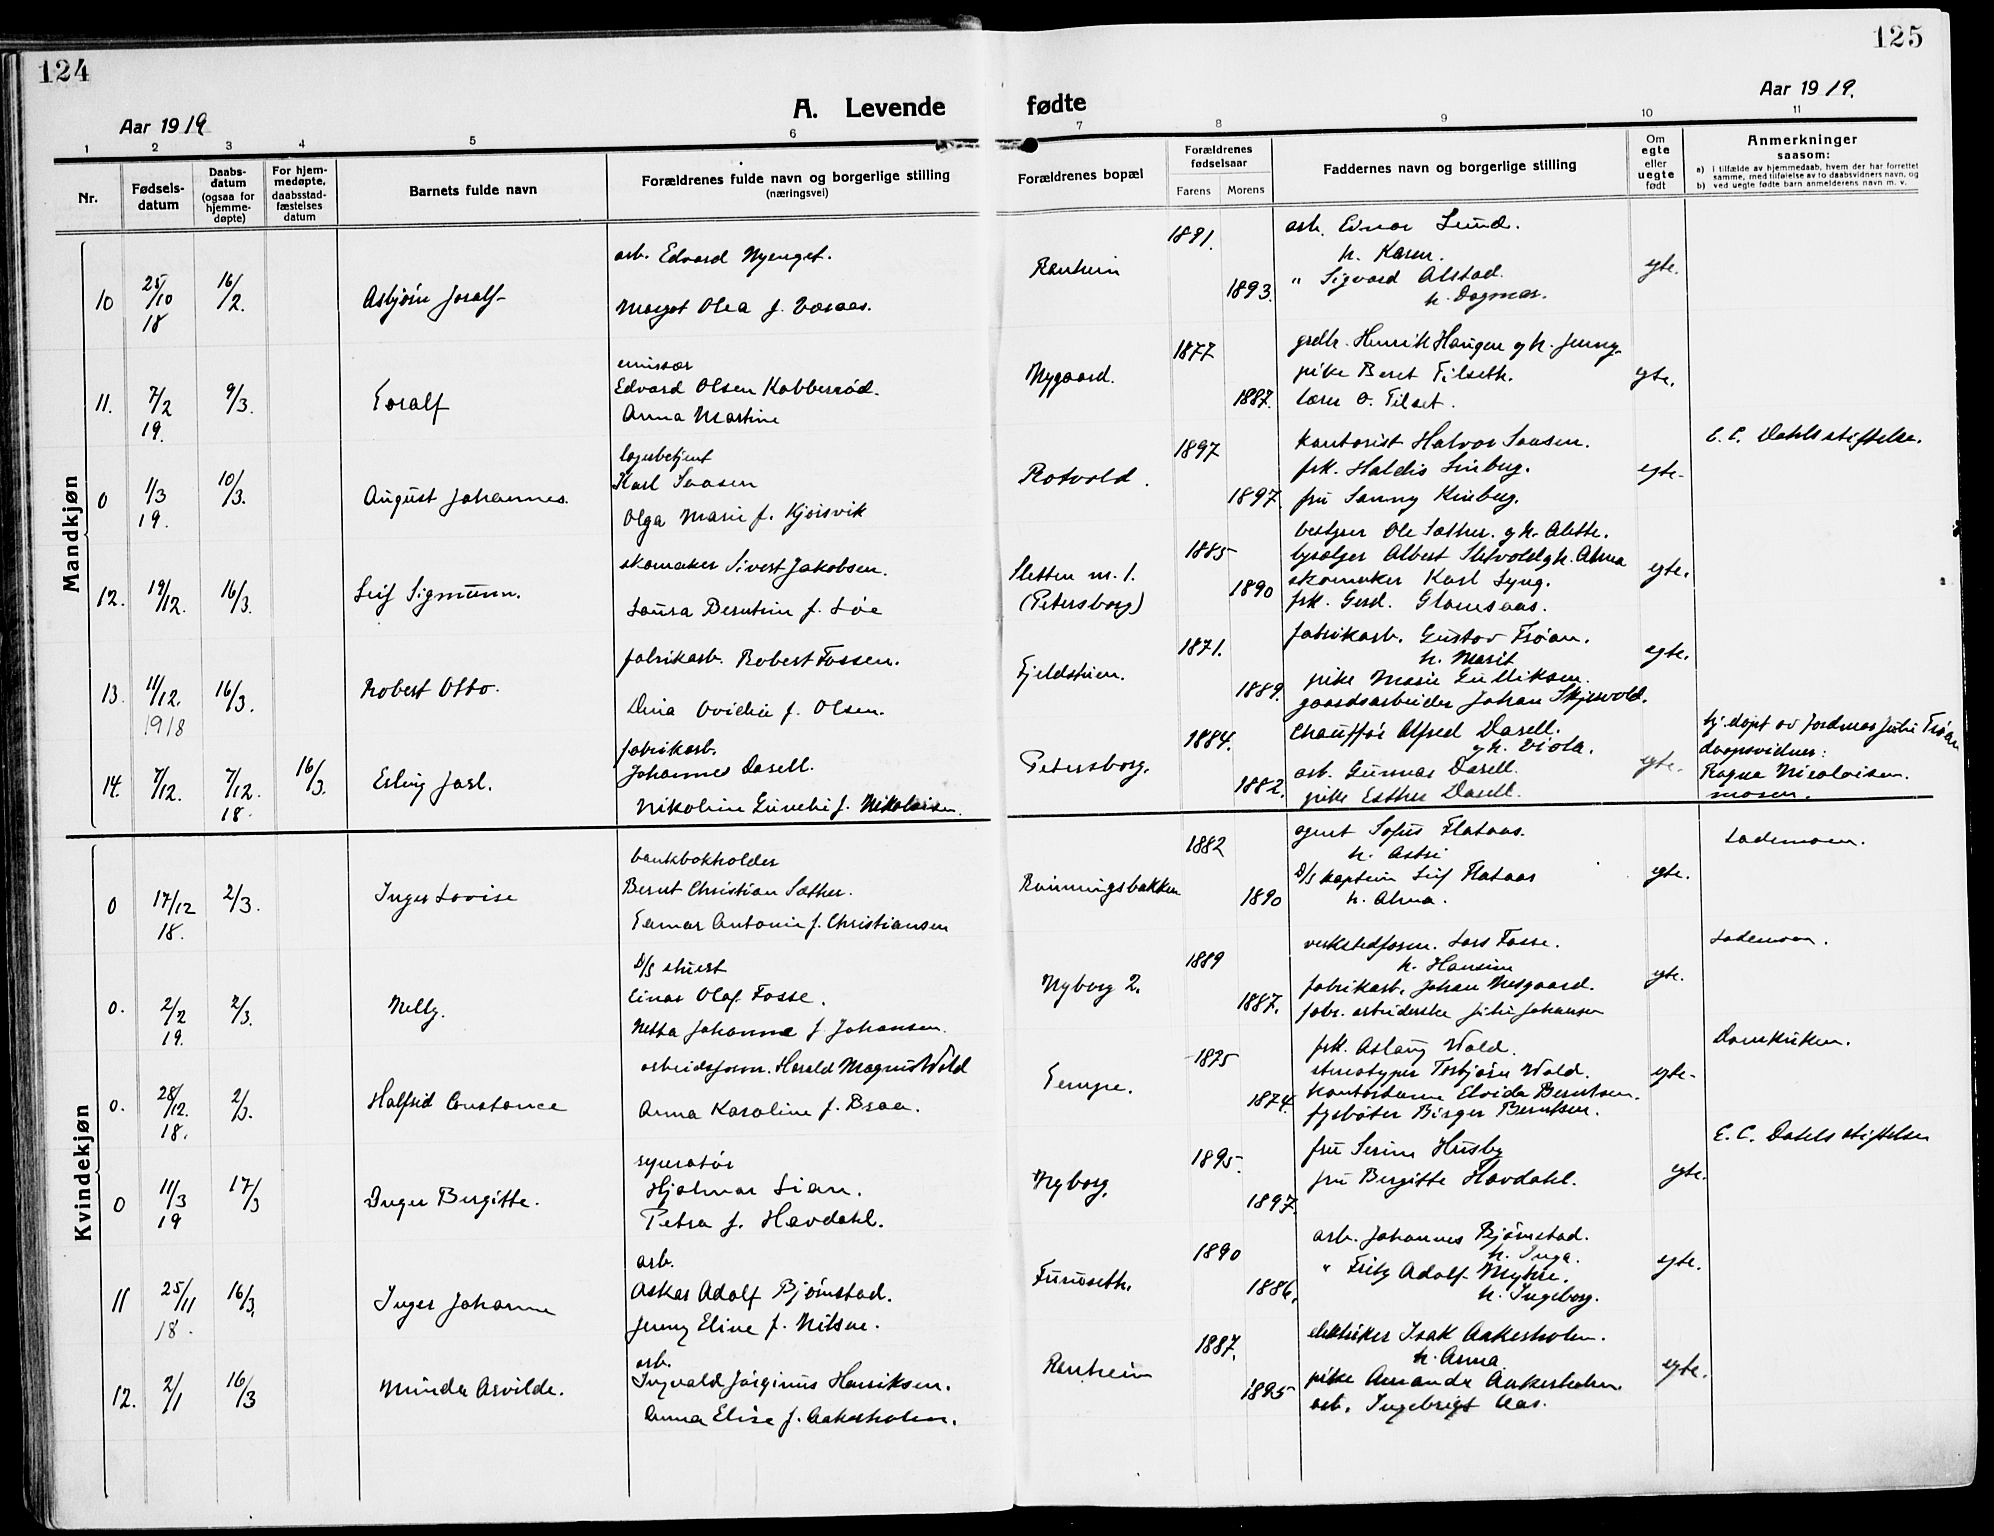 124
Aar 1919
A. Levende
1 2 3 4 5 6
Nr.
Fødsels-
datum
Daabs-
datum
(ogsaa for
hjemme-
døpte)
For hjem-
medøpte,
daabsstad-
fæstelses
datum
Barnets fulde navn
Forældrenes fulde navn og borgerlige stilling
(næringsvei)
Mandkjøn
10 25/10 18 16/2. Asbjørn Joralf
arb. Edvard Nyenget.
Margot Olea f. Væraas.
11. 7/2 19. 9/3. Toralf
emissær
Edvard Olsen Kabberød.
Anna Martine
0 1/3 19. 10/3. August Johannes.
lagerbetjent
Karl Saasen
Olga Marie f. Kjørsvik
12. 19/12. 16/3. Leif Sigmunn.
skomaker Sivert Jakobsen.
Laura Berntin f. Løe
13. 11/12. 1918 16/3. Robert Otto.
fabrikarb. Robert Fossen.
Dina Ovidie f. Olsen.
14. 7/12. 7/12. 18. 16/3. Erling Jarl.
fabrikarb.
Johannes Dasell.
Nikoline f. Nikolaisen.
Kvindekjøn
0 17/12 18. 2/3. Inger Lovise
bankbokholder
Bernt Christian Sæther.
Antonie f. Christiansen
0. 2/2 19. 2/3. Nelly.
D/S stuert
Einar Olaf Fosse.
Netta Johanna f Johansen.
0. 28/12. 18. 2/3. Halfrid Constance
arbeidsform. Harald Magnus Wold
Anna Karoline f. Braa.
0 11/3 19 17/3 Inger Bergitte.
reparatør
Hjalmar Lian.
Petra f. Havdahl.
11 25/11 18. 16/3. Inger Johanne
arb.
Asker Adolf Bjørnstad.
Jenny Eline f. Nilsen.
12. 2/1 16/3 Minda Arvilde.
arb.
Ingvald Jørginus Henriksen.
Anna Elise f. Aakerholm.
125
Aar 1919.
fødte
7 8 9 10 11
Forældrenes bopæl
Forældrenes
fødselsaar
Farens Morens
Faddernes navn og borgerlige stilling
Om
egte
eller
uegte
født
Anmerkninger
saasom:
a) i tilfælde av hjemmedaab, hvem der har forrettet
samme, med tilføielse av to daabsvidners navn, og
b) ved uegte fødte barn anmelderens navn m. v.
Ranheim 1891. 1893.
arb. Einar Lund.
h. Karen.
" Sigvard Alstad.
h. Dagmar.
egte.
Nygaard. 1877 1887.
grdbr. Henrik Haugen og h. Jenny.
pike Beret Tilseth.
lærer O. Tilset.
egte.
Rotvold. 1897 1897.
kontorist Halvor Saasen.
frk. Haldis Linberg.
fru Sanny Kinberg.
egte.
E. C. Dahls stiftelse.
Sletten m. 1.
(Petersborg)
1885 1890
bestyrer Ole Sæther. og h. Alette.
bysælger Albert Sletvold og h. Alma
skomaker Karl Lyng.
frk. Gerd. Glomsaas.
egte.
Fjeldstuen. 1871. 1889.
fabrikarb. Gustav Frøan.
h. Marit
pike Marie Gulliksen.
gaardsarbeider Johan Skjervold.
egte.
Petersborg. 1884. 1882.
Chauffør Alfred Dasell.
og h. Viola.
arb. Gunnar Dasell.
pike Esther Dasell.
egte.
hj. døpt av jordmor Julie Frøan
daapsvidner:
Ragna Nicolaisen.
moren.
Rønningsbakken 1882 1890
agent Sofus Flataas.
h. Astri
D/S kaptein Leif Flataas
h. Alma.
egte.
Lademoen.
Nyborg 2. 1889 1887.
verkstedform. Lars Fosse.
h. Hansine
fabrikarb. Johan Nesgaard.
fabr. arbeiderske Julie Johansen
egte.
Lademoen.
Tempe. 1875 1874.
frk. Aslaug Wold.
stereotypør Torbjørn Wold.
kontordame Elvida Berntsen.
fyrbøter Birger Berntsen.
egte.
Domkirken.
Nyborg. 1895. 1897.
fru Serine Husby
fru Bergitte Havdahl.
egte.
E. C. Dahls stiftelse
Furuseth. 1890 1886.
arb. Johannes Bjørnstad.
h. Inga.
" Fritz Adolf Myhre.
h. Ingeborg.
egte.
Ranheim 1887. 1895
elektriker Isak Aakerholm.
h. Anna
pike Amanda Aakerholm.
arb. Ingebrigt Aas.
egte.